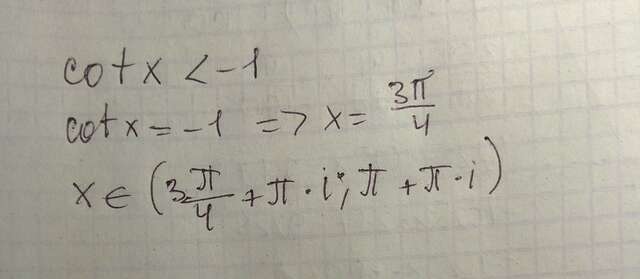 cot x < -1
cot x = -1 => x = 3π/4
x ∈ (3π/4 + π · i; π + π · i)